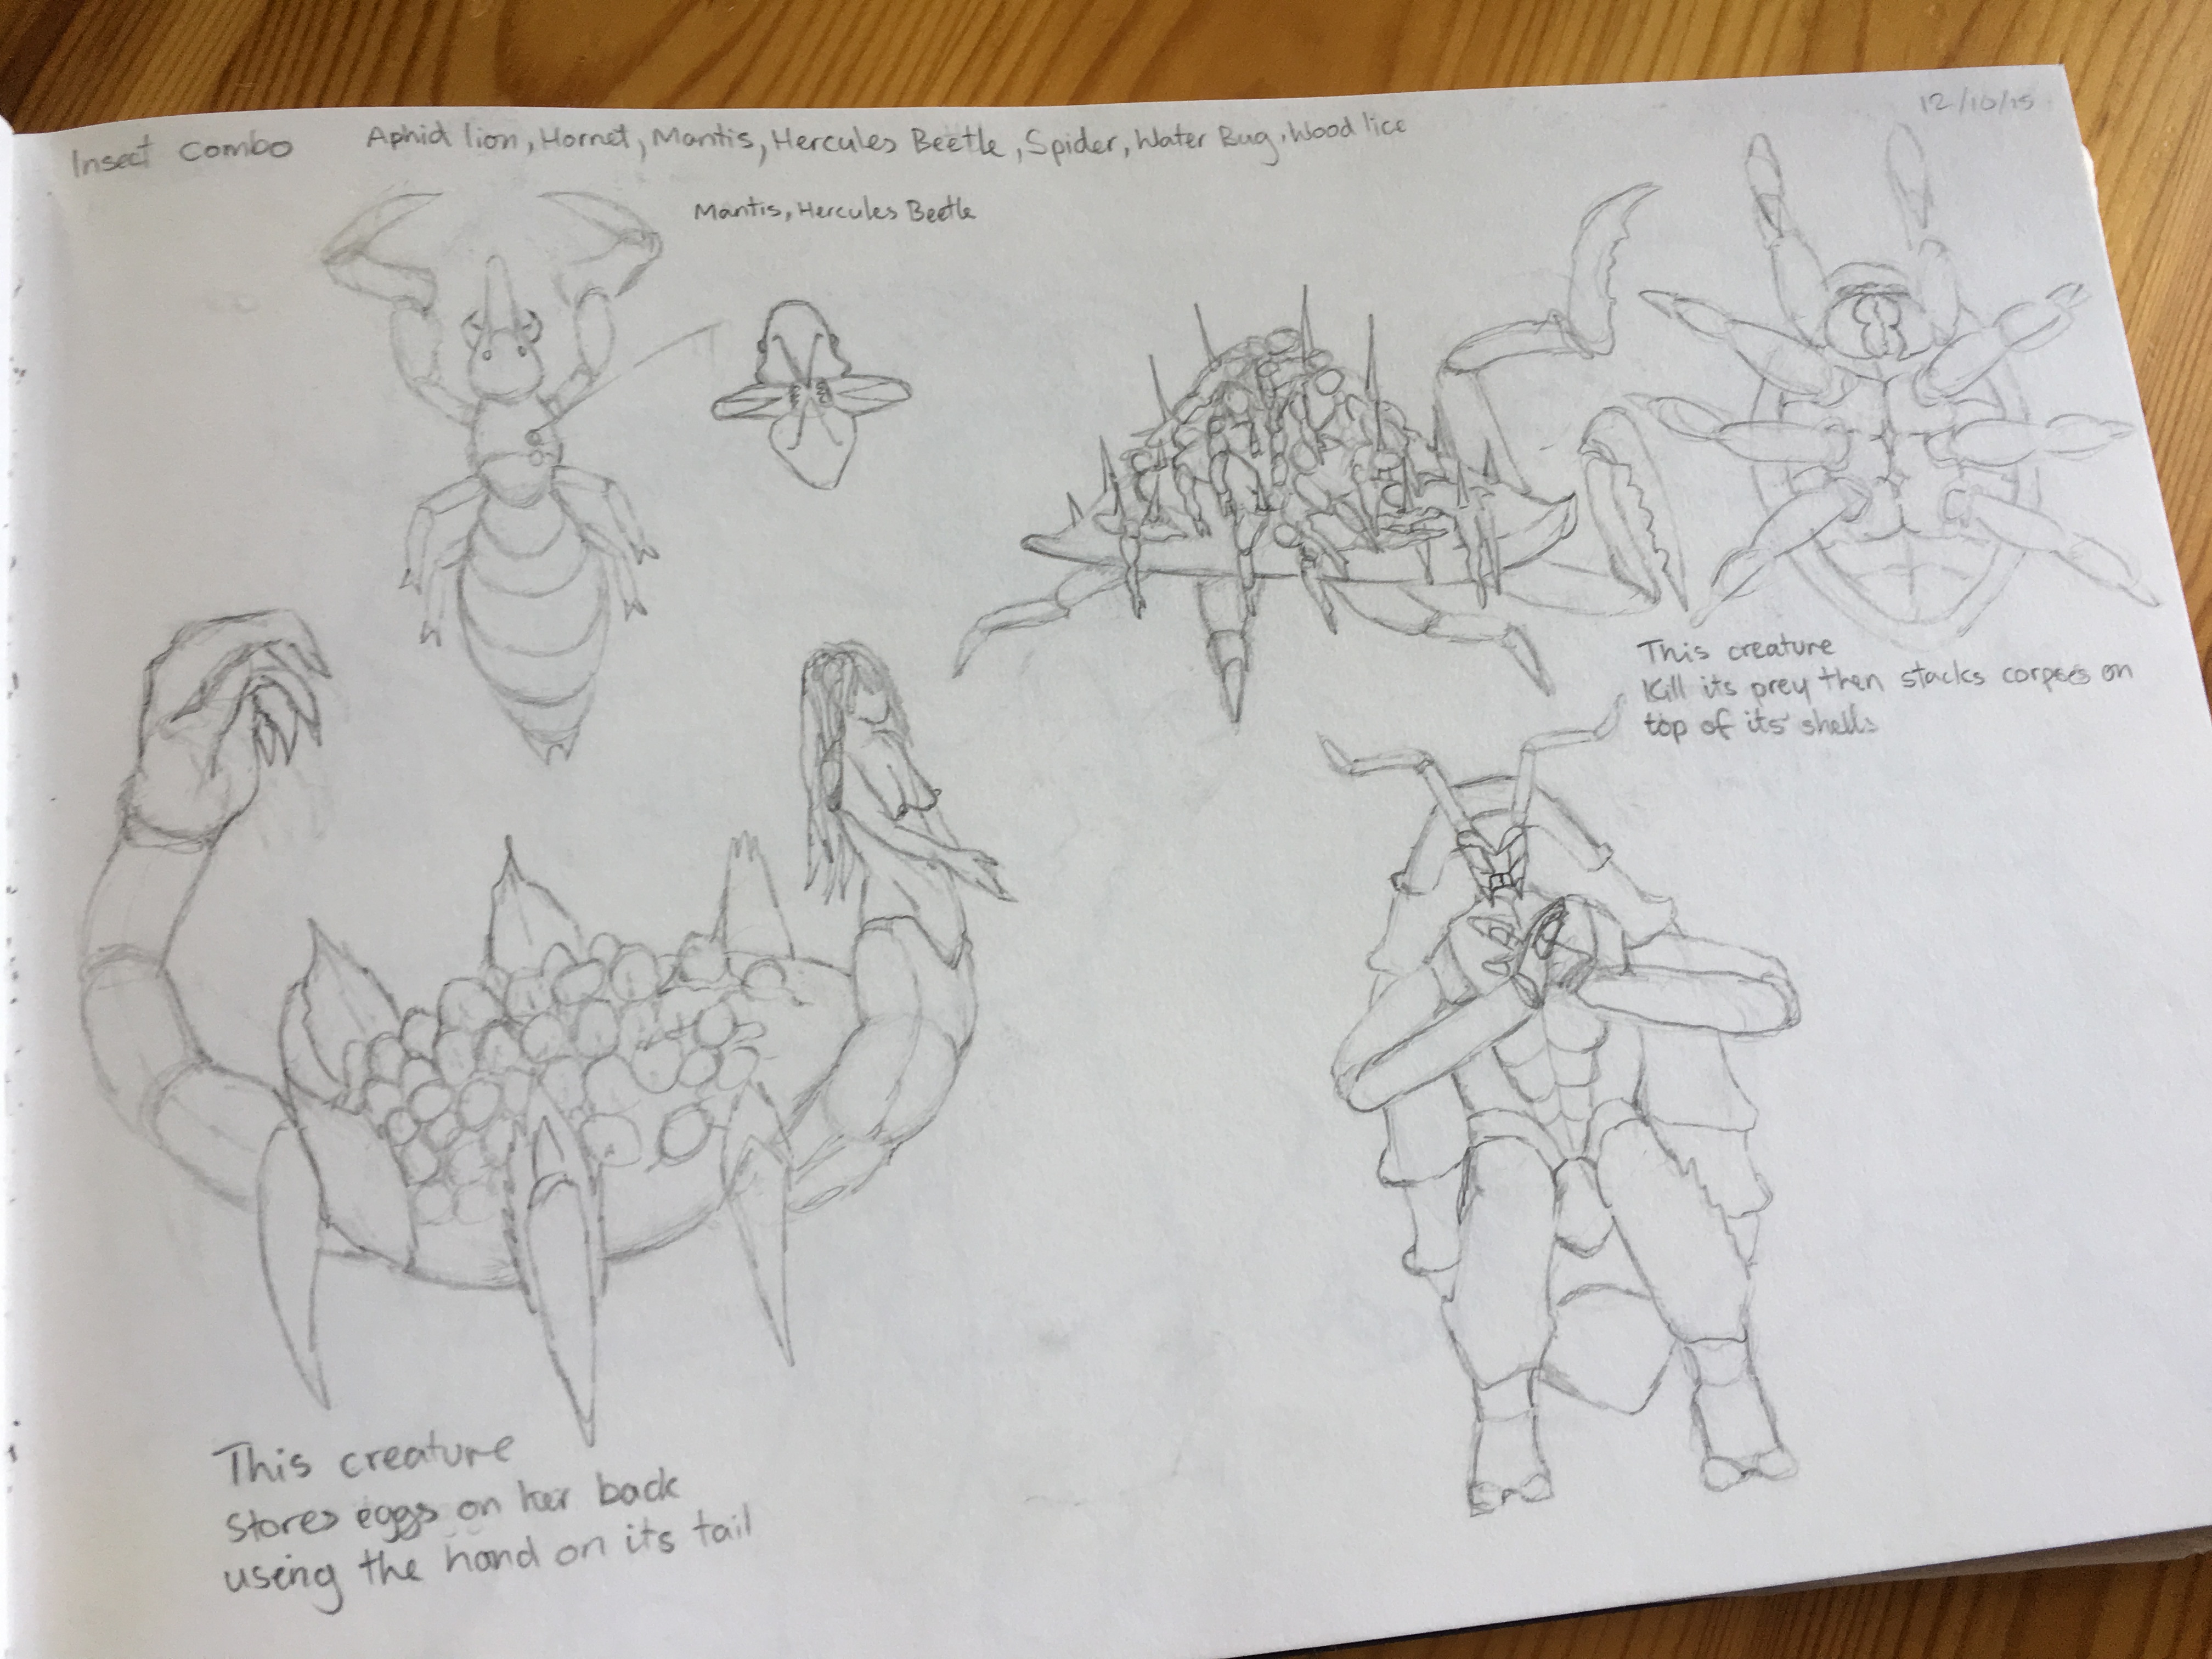 Insect Combo
Aphid lion, Hornet, Mantis, Hercules Beetle, Spider, Water Bug, Wood lice
12/10/15
Mantis, Hercules Beetle
This creature
Kill its prey then stacks corpses on
top of its shells
This creature
stores eggs on her back
using the hand on its tail